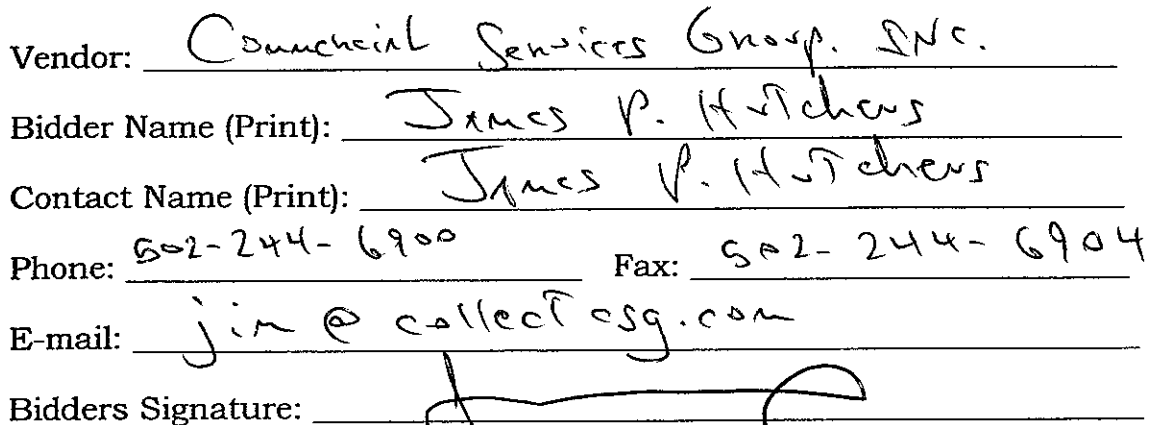 Vendor: Commercial Services Group. INC.
Bidder Name (Print): James P. Hutchens
Contact Name (Print): James P. Hutchens
Phone: 502-244-6900 Fax: 502-244-6904
E-mail: jim@collectcsg.com
Bidders Signature: